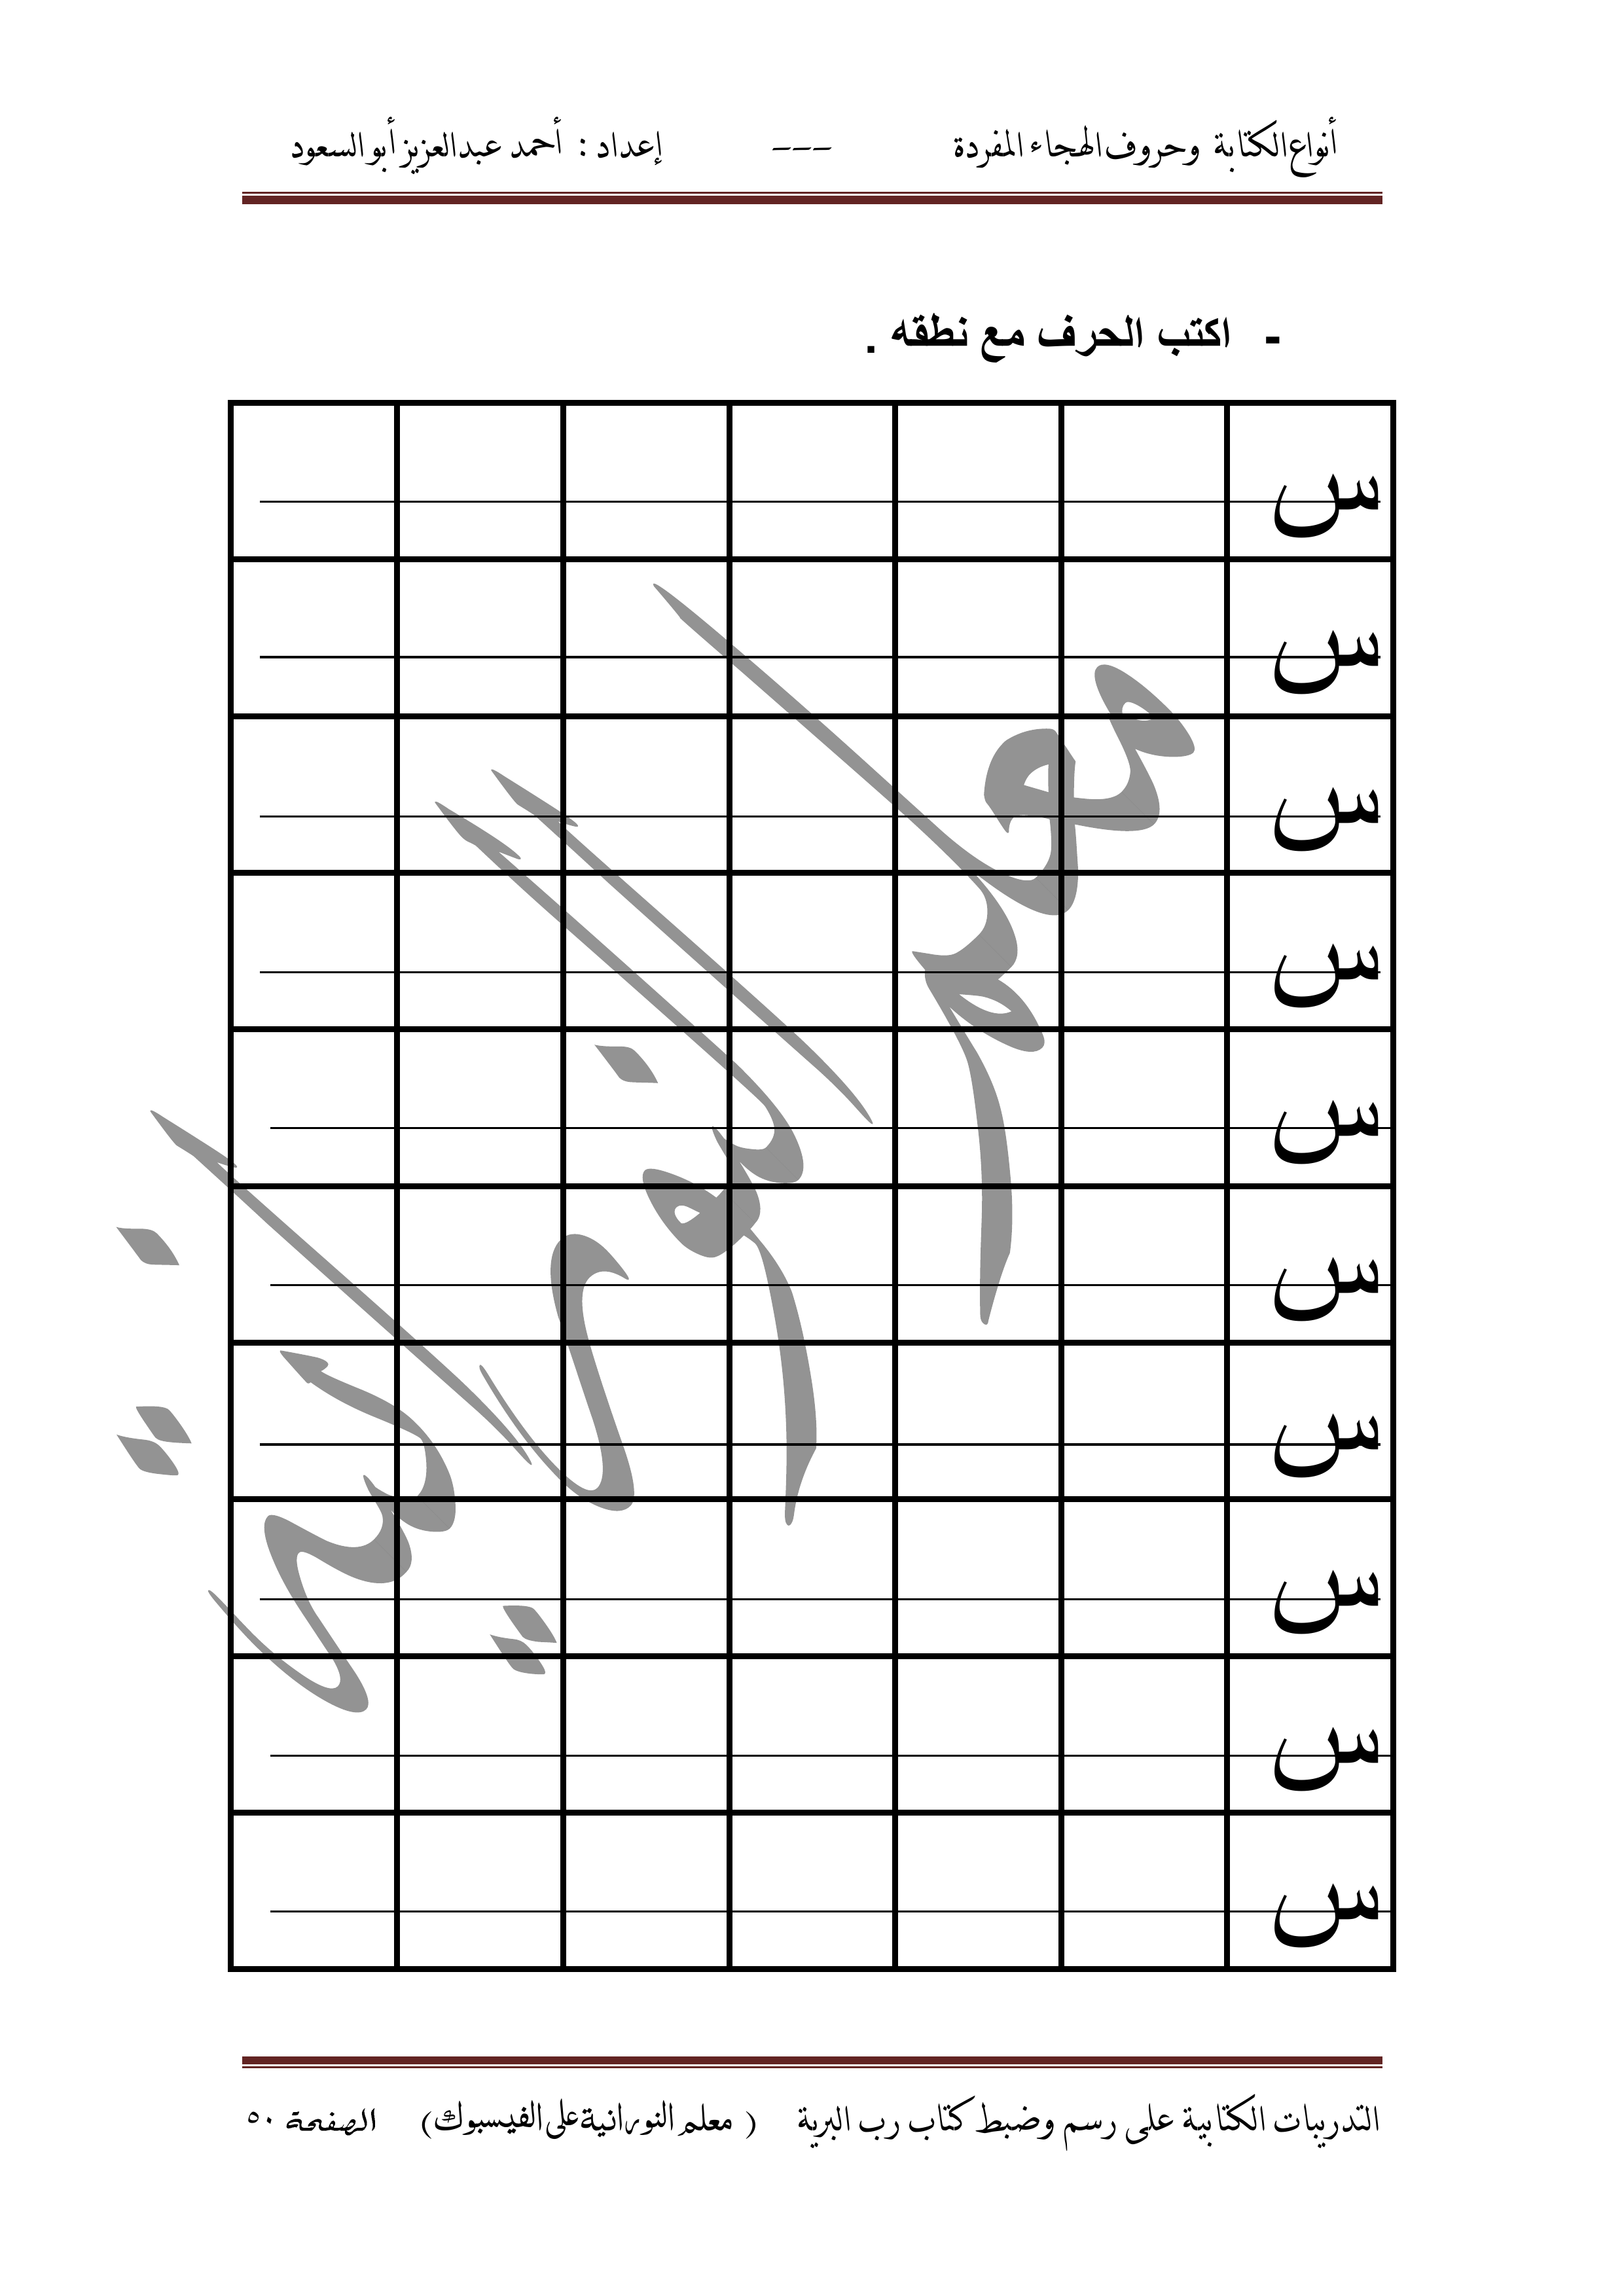 أنواع الكتابة وحروف الهجاء المفردة --- إعداد : أحمد عبدالعزيز أبو السعود
- اكتب الحرف مع نطقه .
س
س
س
س
س
س
س
س
س
س
معلم النورانية
التدريبات الكتابية على رسم وضبط كتاب رب البرية ( معلم النورانية على الفيسبوك) الصفحة ٥٠